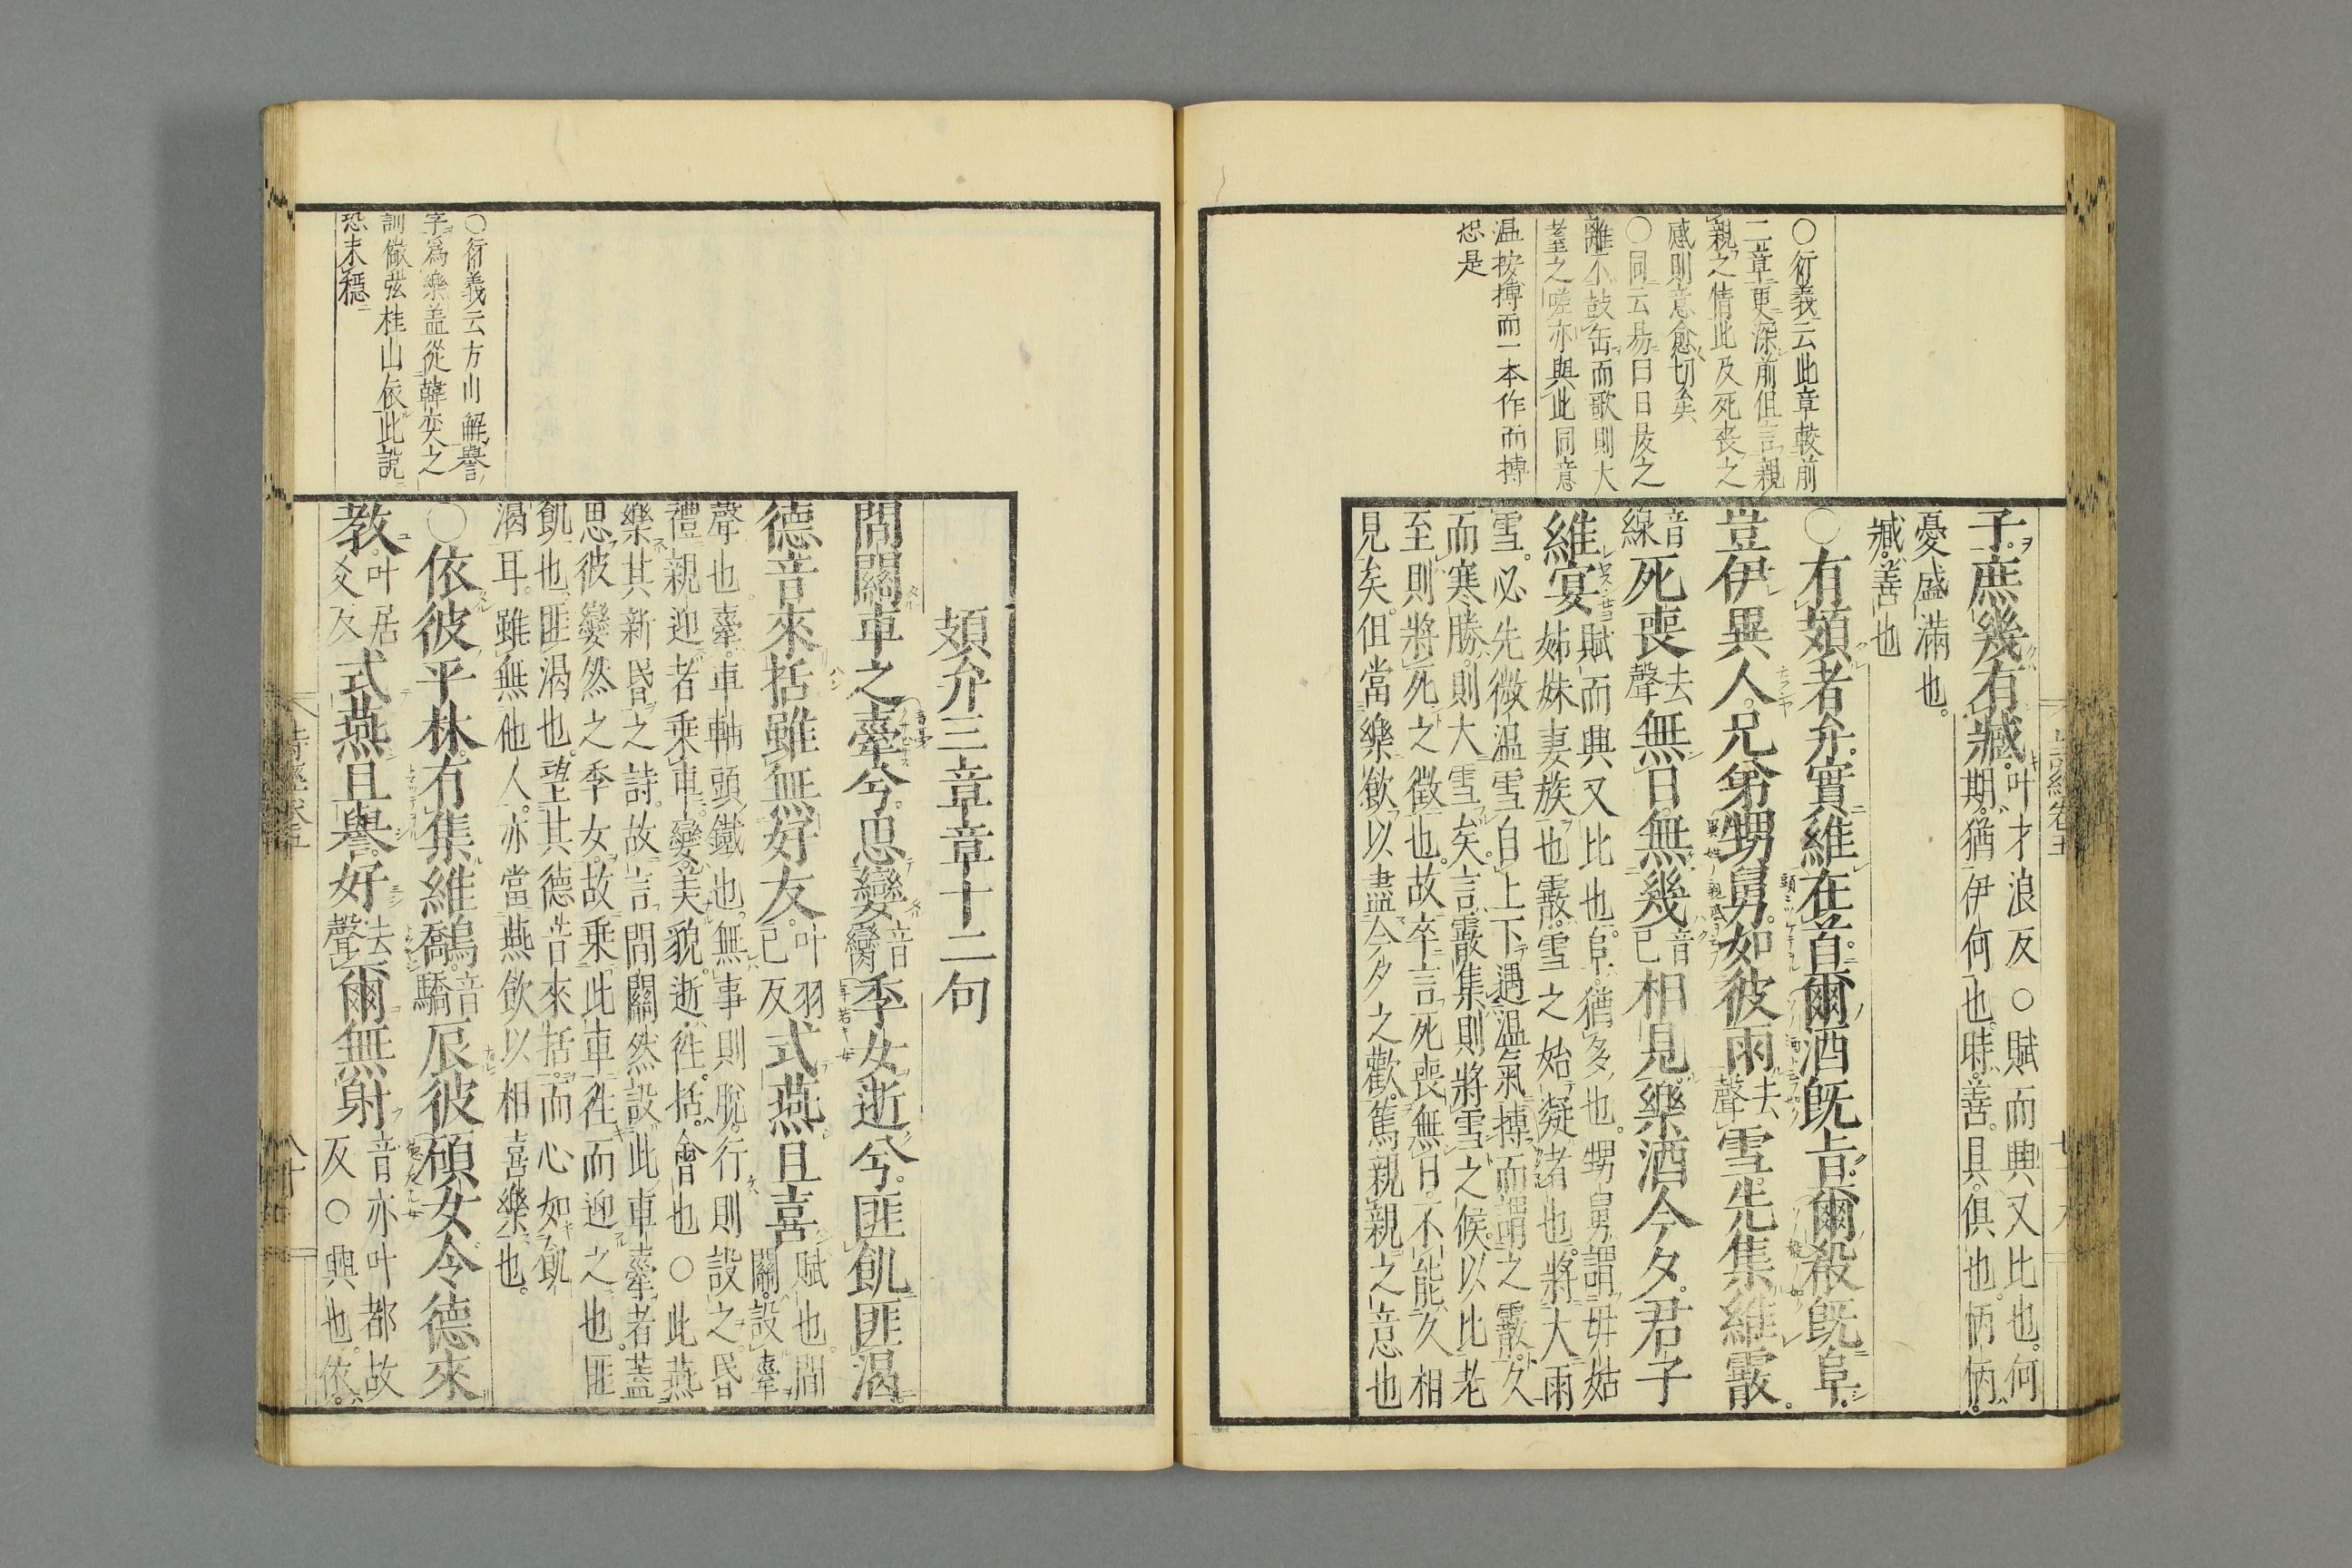 ○衍義云此章較前
二章更深前但言親
親之情此及死喪之
感則意愈切矣
○同云易曰日昃之
離不鼓缶而歌則大
耋之嗟亦與此同意
温按摶而一本作而搏
恐是
子庶幾有臧叶才浪反○賦而興又比也何
期猶伊何也時善具俱也怲怲
憂盛滿也
臧善也
○有頍者弁實維在首爾酒既旨爾殽既阜
豈伊異人兄弟甥舅如彼雨去聲雪先集維霰
音線死喪去聲無日無幾音已相見樂酒今夕君子
維宴賦而興又比也阜猶多也甥舅謂母姑
姊妹妻族也霰雪之始凝者也將大雨
雪必先微温雪自上下遇温氣摶而謂之霰久
而寒勝則大雪矣言霰集則將雪之候以比老
至則將死之徵也故卒言死喪無日不能久相
見矣但當樂飲以盡今夕之歡篤親親之意也
頍弁三章章十二句
間關車之舝兮思孌音臠季女逝兮匪飢匪渴
德音來括雖無好友叶羽已反式燕且喜賦也間
關設舝
聲也舝車軸頭鐵也無事則脫行則設之昏
禮親迎者乘車孌美貌逝往括會也○此燕
樂其新昏之詩故言間關然設此車舝者蓋
思彼孌然之季女故乘此車往而迎之也匪
飢也匪渴也望其德音來括而心如飢
渴耳雖無他人亦當燕飲以相喜樂也
○依彼平林有集維鷮音驕辰彼碩女令德來
教叶居爻反式燕且譽好去聲爾無射音亦叶都故反○興也依
○衍義云方山解譽
字爲樂蓋從韓奕之
訓徽弦桂山依此説
恐未穩